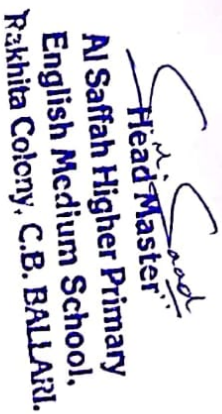 Head Master
Al Saffah Higher Primary
English Medium School,
Rakhita Colony, C.B. BALLARI.